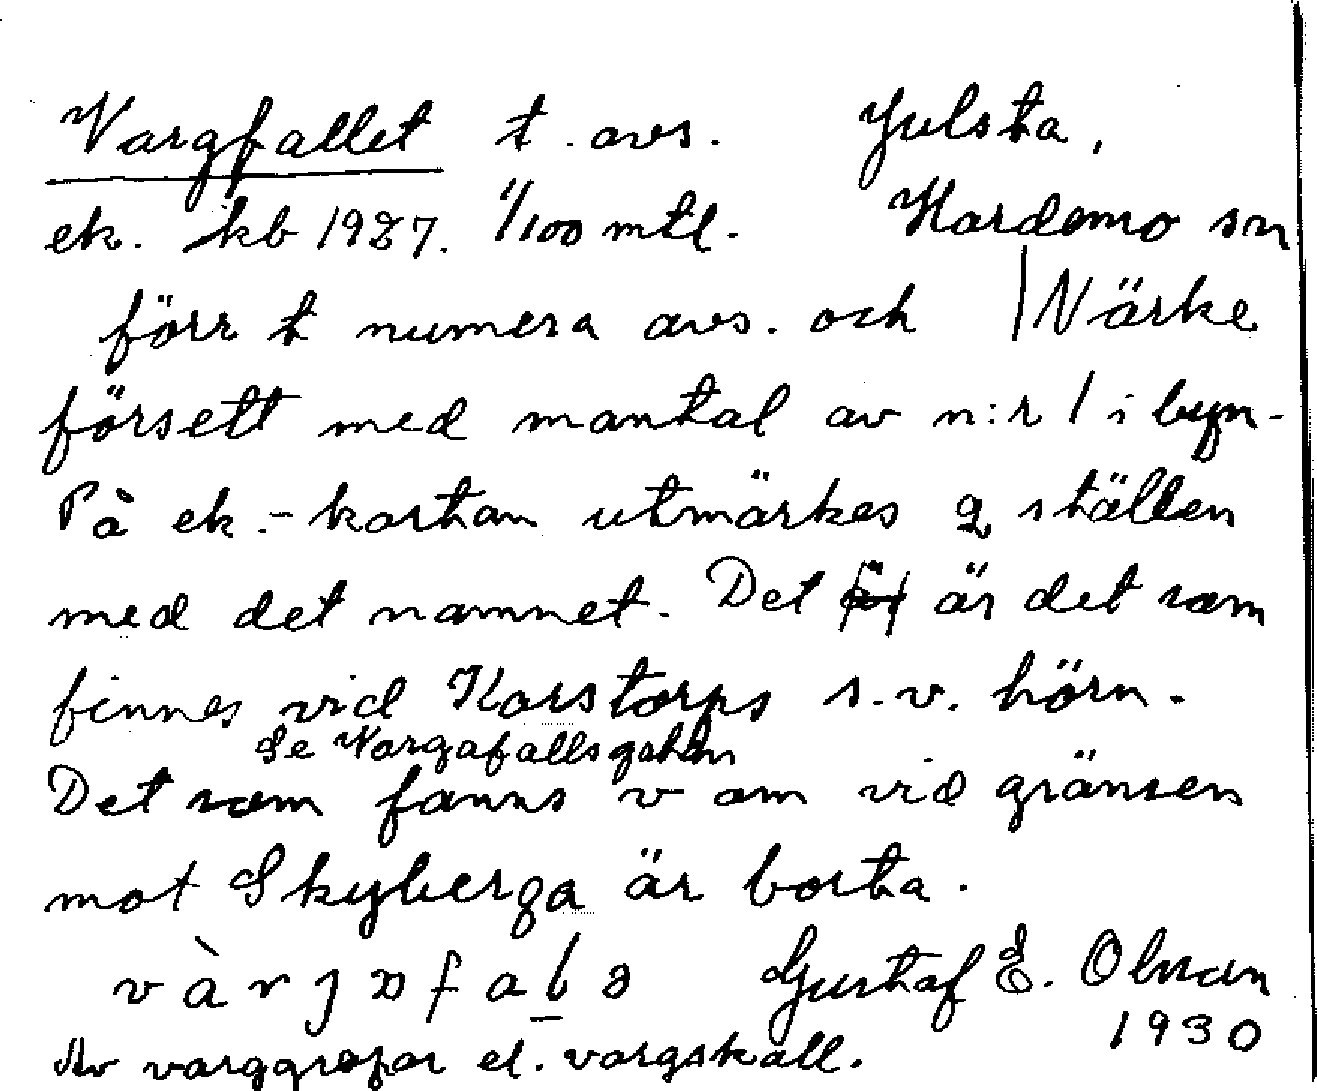 Vargfallet t. avs. Julsta,
ek. kb 1927. 1/100 mtl. Hardemo sn
förr t numera avs. och | Närke
försett med mantal av n:r 1 i byn-
På ek.-kartan utmärkes 2 ställen
med det namnet. Det är det som
finnes vid Korstorps s.v. hörn.
Se Vargafallsgatan
Det som fanns v om vid gränsen
mot Skyberga är borta.
Gustaf E. Olsson
1930
Av varggropar el. vargskall.